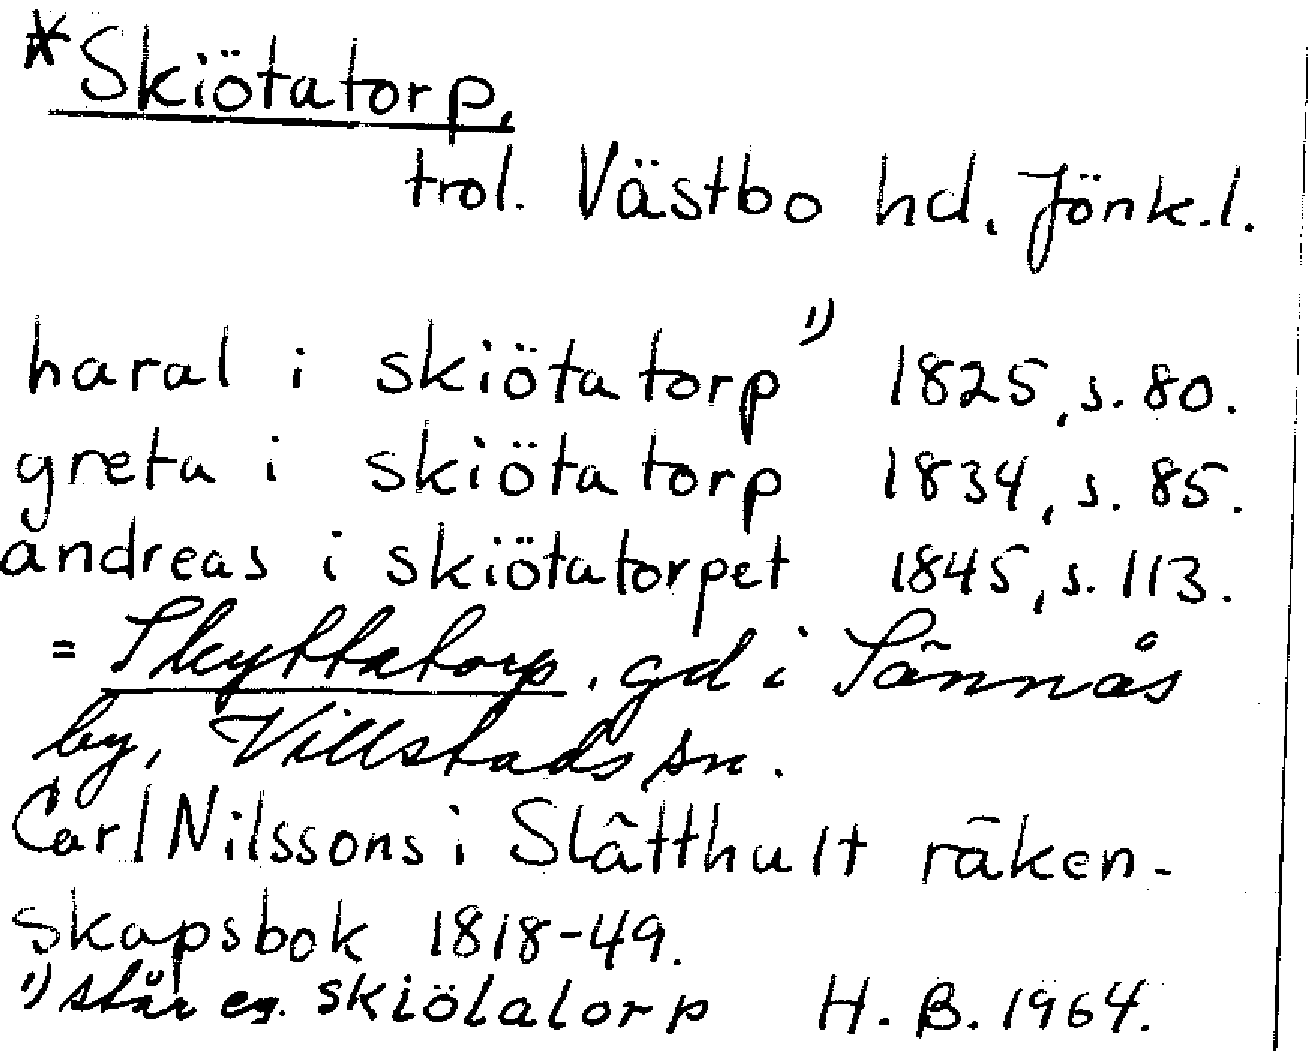 *Skiötatorp.
trol. Västbo hd. Jönk.l.
haral i skiötatorp 1) 1825, s. 80.
greta i skiötatorp 1834, s. 85.
andreas i skiötatorpet 1845, s. 113.
= Skyttatorp, gd i Sännås
by, Villstads sn.
Carl Nilssons i Slätthult räken-
skapsbok 1818-49.
1) står eg. skiölalorp H. B. 1964.